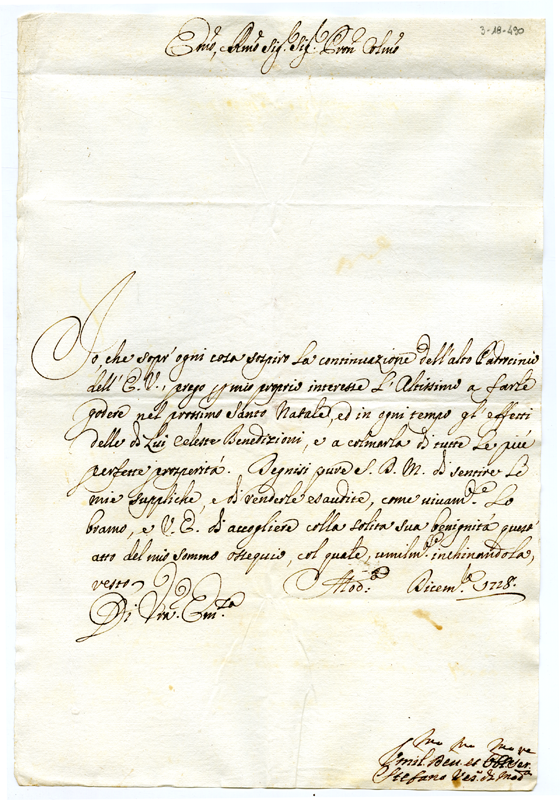 3-18-490
Emo, Rmo Sigr Sigr Pron Colmo
Io, che sopr'ogni cosa sospiro la continuazione dell'alto Padrocinio
dell'E. V., prego p mio proprio interesse l'Altissimo a farle
godere nel prossimo Santo Natale, ed in ogni tempo gl'effetti
delle di Lui Celesti Benedizioni, e a colmarla di tutte le più
perfette prosperità. Degnisi pure S. D. M. di sentire le
mie suppliche, e di renderle esaudite, come vivamte lo
bramo, e V. E. di accogliere colla solita sua benignità quest'
atto del mio sommo ossequio, col quale, umilmte inchinandola,
resto
Mod:a Dicemb. 1728.
Di Vra Emza
Umilmo Devmo et Obbmo Serve
Stefano Ves: di Moda